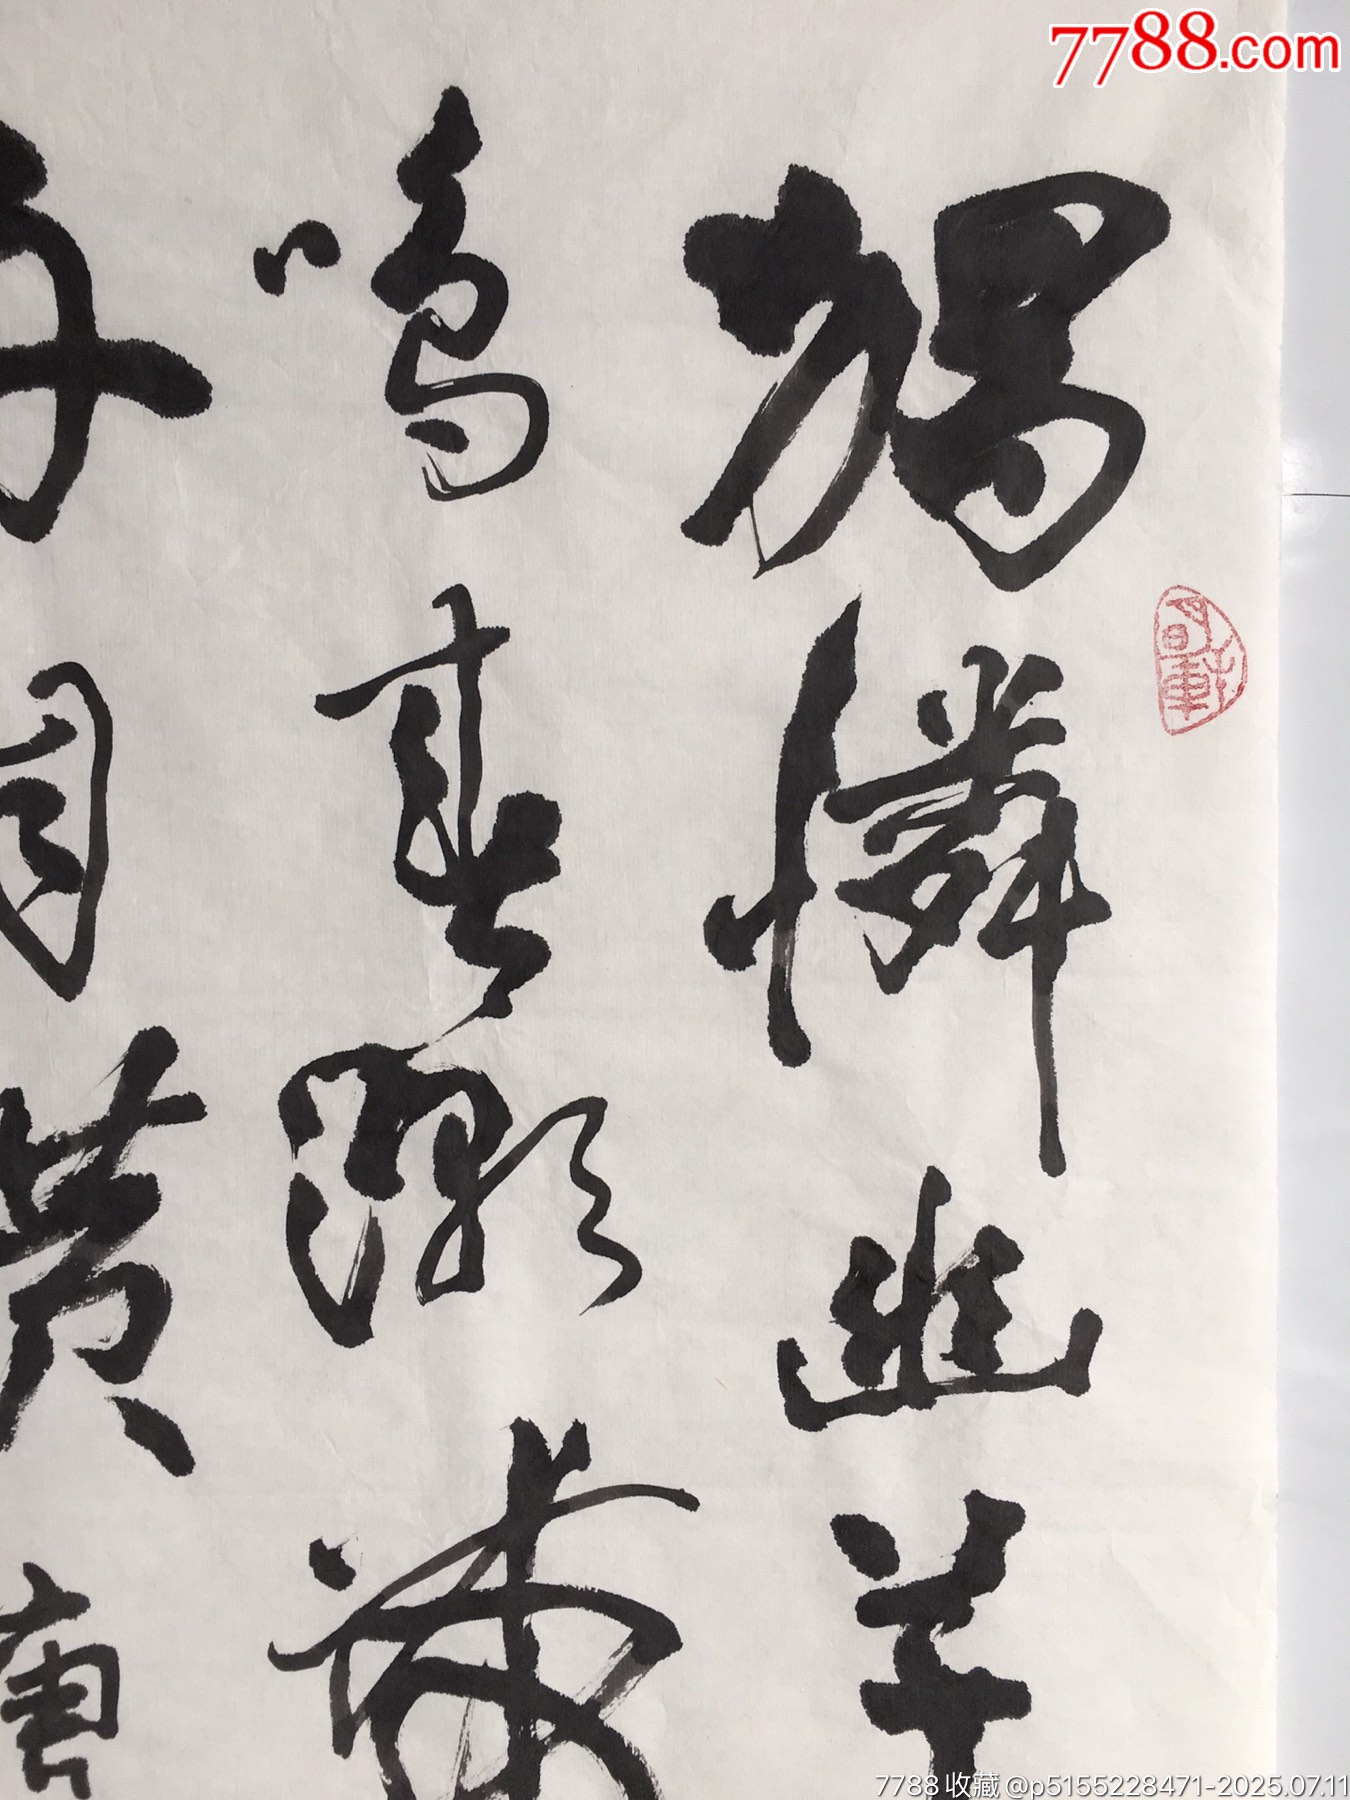 7788.com
獨憐幽草
鳴春潮帶
舟自橫 唐
7788收藏 @p5155228471-2025.07.11